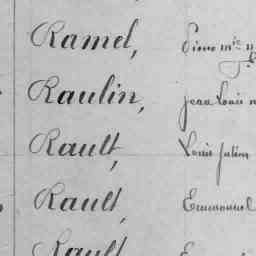 Ramel, Pierre Mie
Raulin, Jean Louis
Rault, Louis Julien
Rault, Emmanuel
Rault,